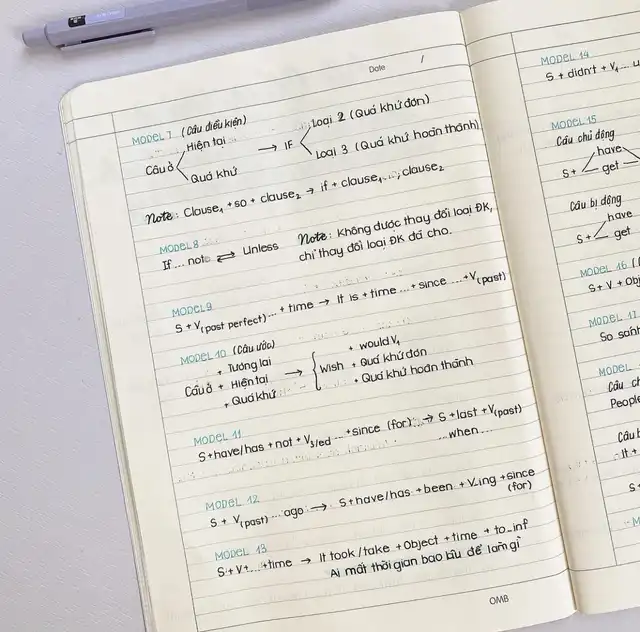 Date /
MODEL 7 (Câu điều kiện)
Câu ở Hiện tại → IF Loại 2 (Quá khứ đơn)
Quá khứ Loại 3 (Quá khứ hoàn thành)
Note: Clause₁ + so + clause₂ → if + clause₁ ..., clause₂
MODEL 8
If ... not ⇄ Unless Note: Không được thay đổi loại ĐK,
chỉ thay đổi loại ĐK đã cho.
MODEL 9
S + V(past perfect) ... + time → It is + time ... + since ... + V(past)
MODEL 10 (Câu ước)
Câu ở + Tương lai → wish + would V₁
+ Hiện tại + Quá khứ đơn
+ Quá khứ + Quá khứ hoàn thành
MODEL 11
S + have/has + not + V3/ed ... + since (for) → S + last + V(past)
... when ...
MODEL 12
S + V(past) ... ago → S + have/has + been + V-ing + since
(for)
MODEL 13
S + V + ... + time → It took/take + Object + time + to_inf
Ai mất thời gian bao lâu để làm gì
OMB
MODEL 14
S + didn't + V₁ ...
MODEL 15
Câu chủ động
S + have
get
Câu bị động
S + have
get
MODEL 16
S + V + Obj
MODEL 17
So sánh
MODEL
Câu
People
Câu
It +
S